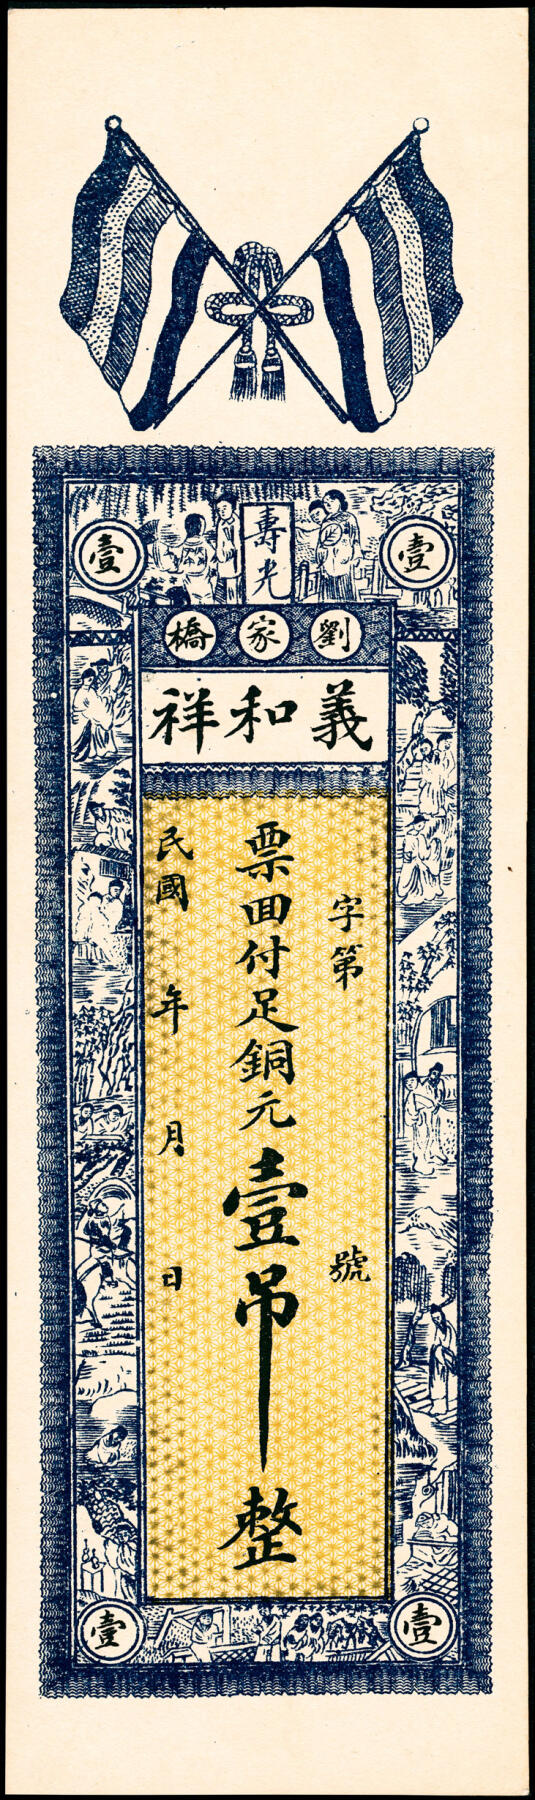 壽光
壹
壹
劉家橋
義和祥
字第 號
票面付足銅元壹吊整
民國 年 月 日
壹
壹